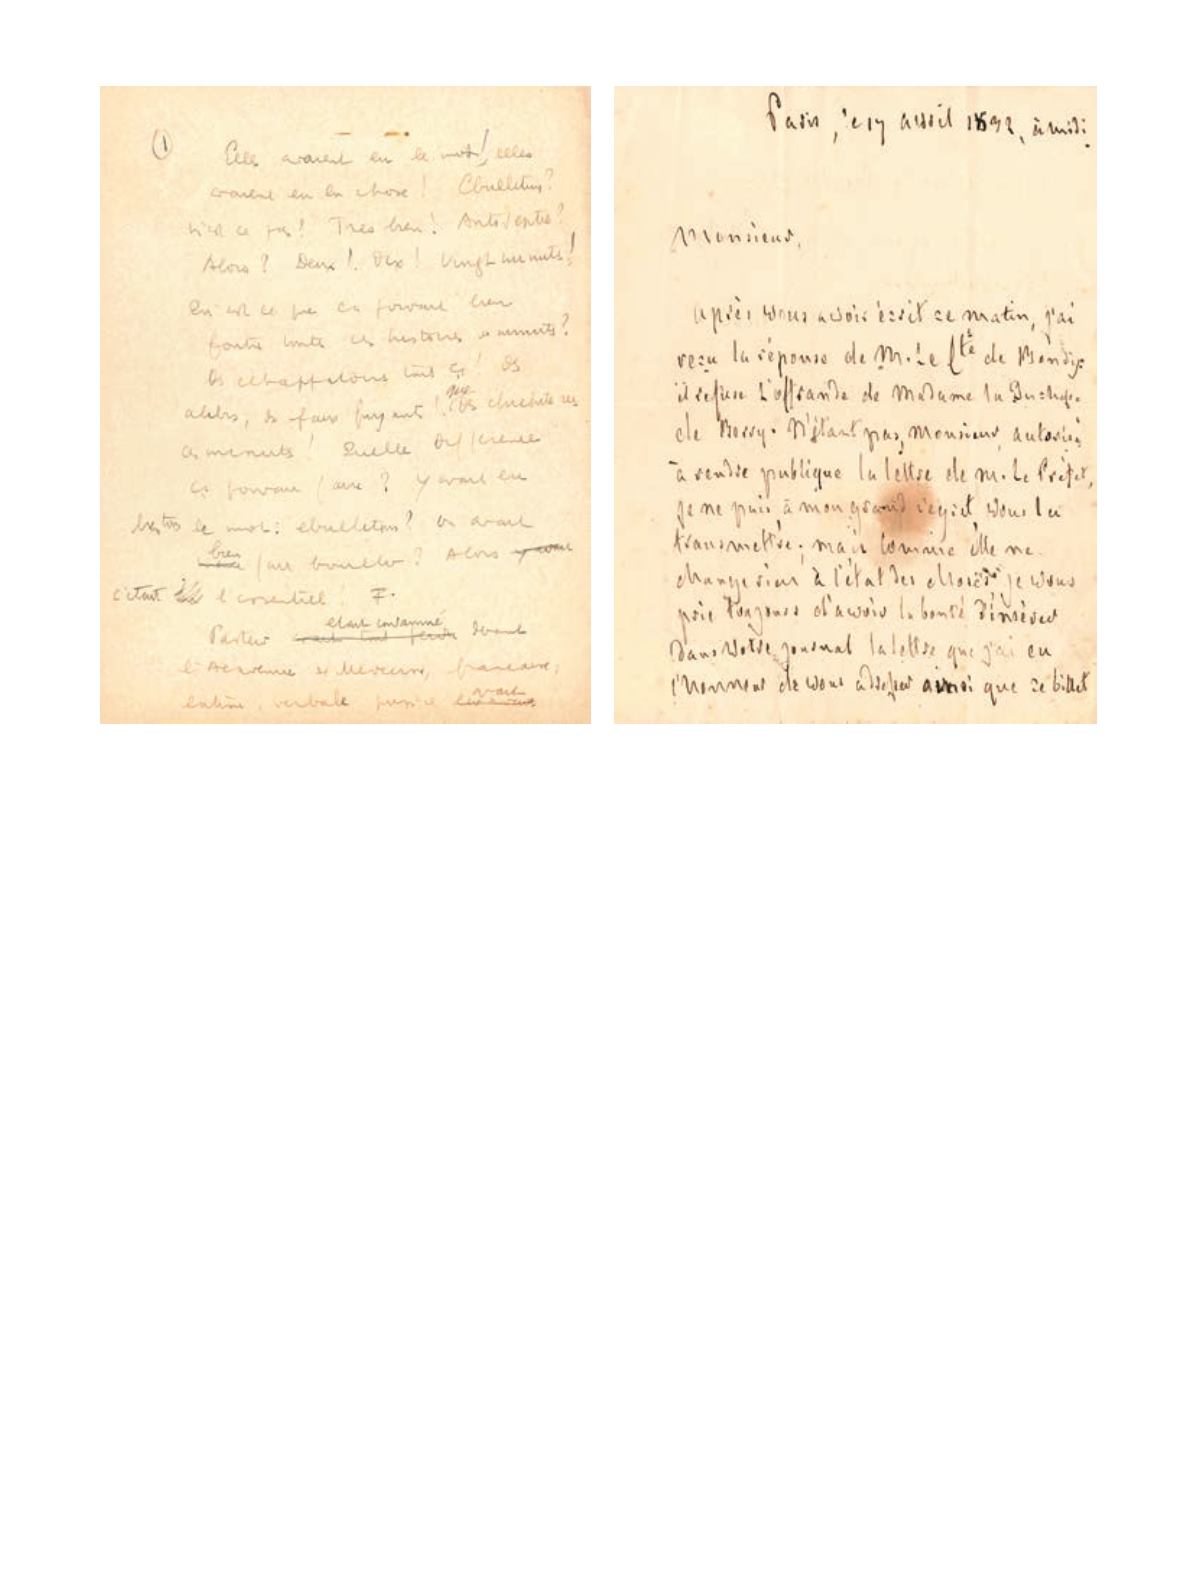 1
Elles avaient eu le mot! elles
avaient eu la chose! Ebullition?
n'est ce pas! Tres bien! Antiseptie?
Alors? Deux! Dix! Vingt minutes!
Qu'est ce que ca pouvait bien
foutre toutes ces histoires de minutes?
Des echappatoires tout ça! Des
alibis, des faux fuyants!
ces minutes! Quelle difference
ca pouvait faire? Y avait eu
le mot: ebullition? on avait
bien fait bouillir? Alors y avait
c'était l'essentiel!
Pasteur était condamné devant
l'Academie de Medecine, francaise,
latine, verbale avait
Paris, le 17 avril 1832, à midi.
Monsieur,
après vous avoir écrit ce matin, j'ai
reçu la réponse de M. Le Cte de Bondy:
il refuse l'offrande de Madame la Duchesse
de Berry. N'étant pas, Monsieur, autorisé
à rendre publique la lettre de M. Le Préfet,
je ne puis à mon grand regret vous la
transmettre; mais comme elle ne
change rien à l'état des choses je vous
prie toujours d'avoir la bonté d'insérer
dans votre journal la lettre que j'ai eu
l'honneur de vous adresser ainsi que ce billet